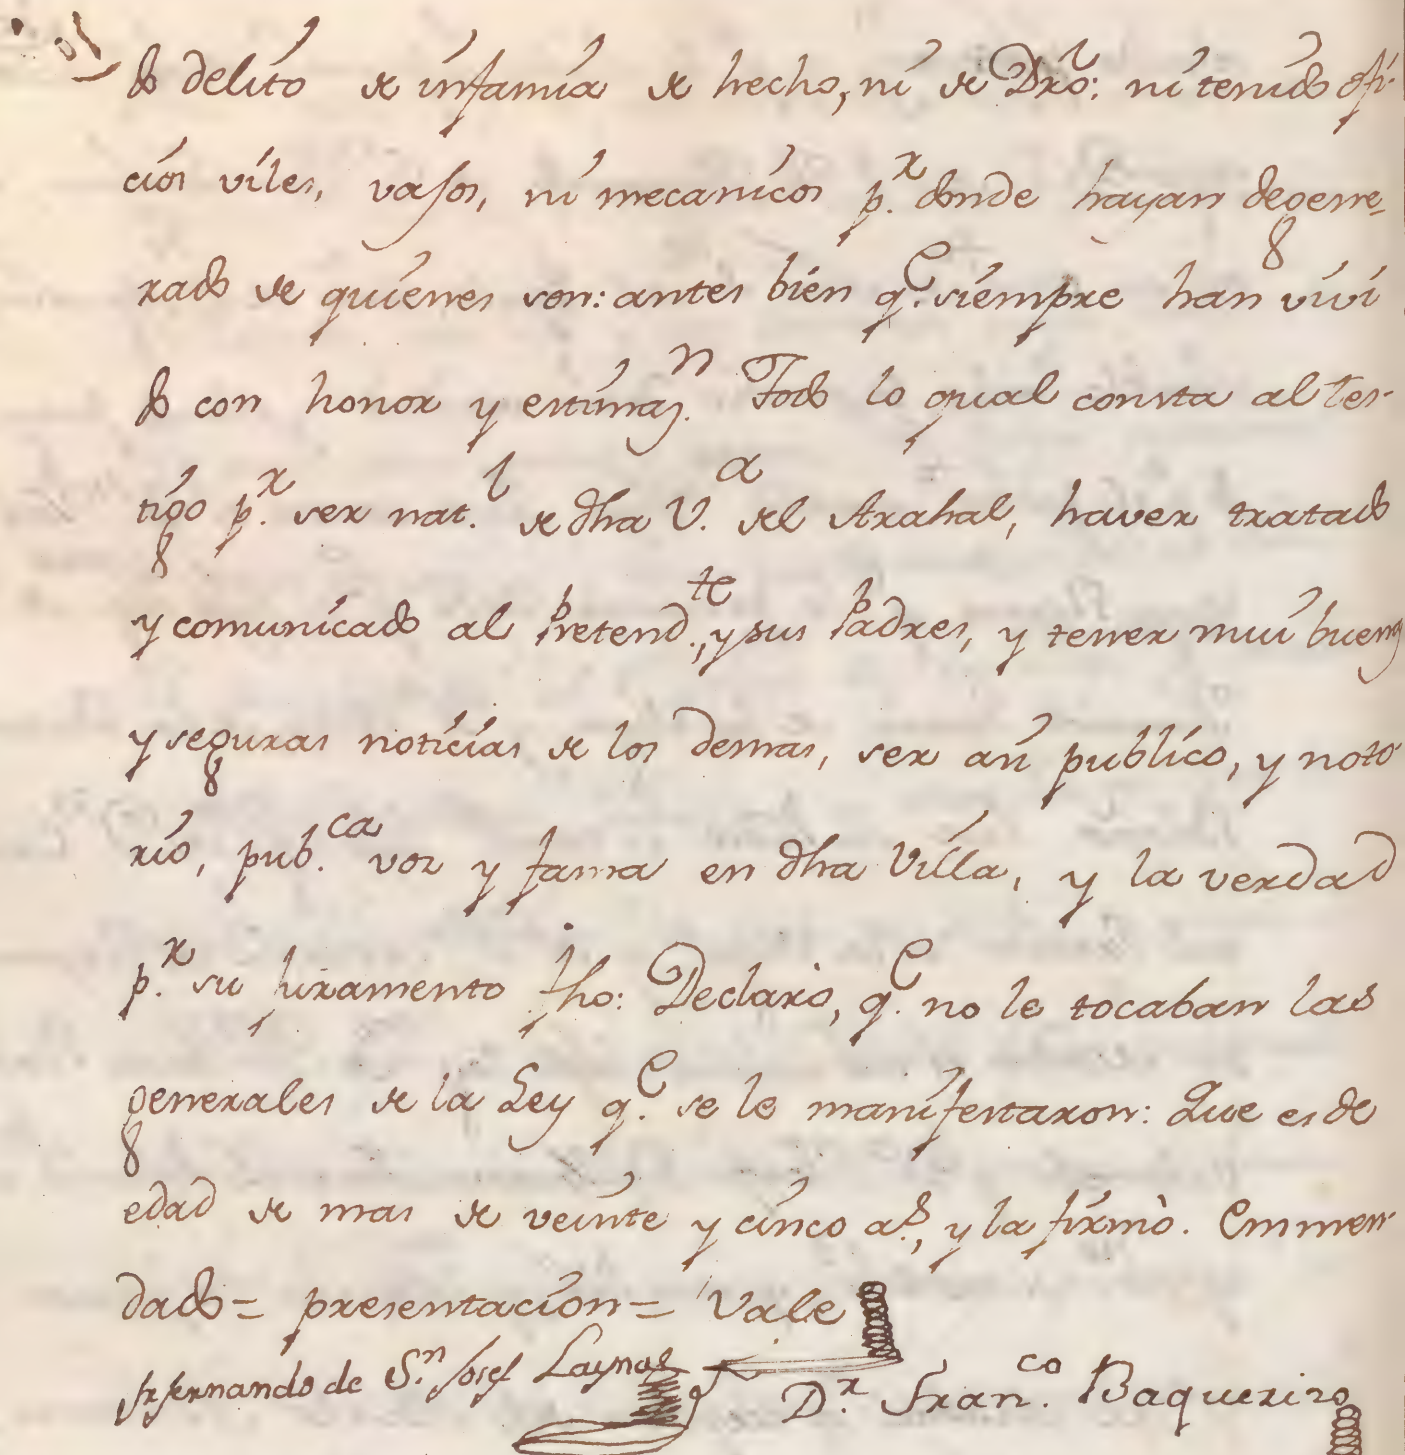 do delito de infamia de hecho, ni de Dro: ni tenido ofi-
cios viles, vajos, ni mecanicos p.r donde hayan degene-
rado de quienes son: antes bien q.e siempre han vivi
do con honor y estimaz.n Todo lo qual consta al tes-
tigo p.r ser nat.l de dha V.a del Arahal, haver tratado
y comunicado al Pretend.te, y sus Padres, y tener mui buenas
y seguras noticias de los demas, ser asi publico, y noto-
rio, pub.ca voz y fama en dha Villa, y la verdad
p.r su juramento fho: Declarò, q.e no le tocaban las
generales de la Ley q.e se le manifestaron: Que es de
edad de mas de veinte y cinco a.s, y la firmò. Emmen-
dado = presentacion = Vale
fr fernando de S.n Josef Laynas
D.r Fran.co Baqueriro